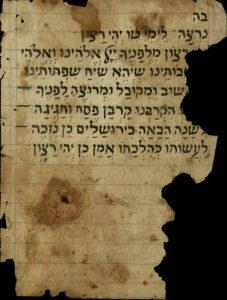 בה
נרצה לימי טו יהי רצון
רצון מלפניך ייי אלהינו ואלהי
בותינו שיהא שיח שפתותינו
שוב ומקובל ומרוצה לפניך
הקרבנו קרבן פסח וחגיגה
שנה הבאה בירושלים כן נזכה
לעשותו כהלכתו אמן כן יהי רצון